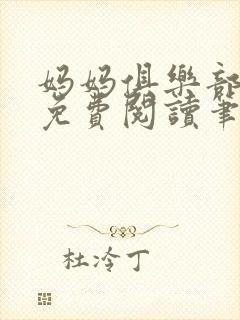 妈妈俱樂部
免費閱讀筆
杜冷丁